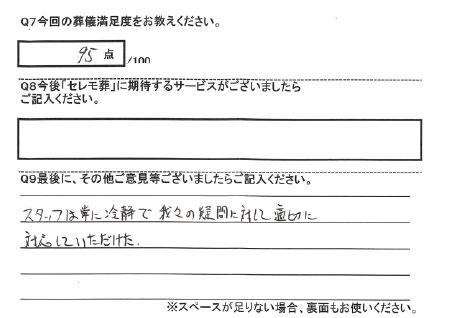 Q7今回の葬儀満足度をお教えください。
95 点 /100
Q8今後「セレモ葬」に期待するサービスがございましたら
ご記入ください。
Q9最後に、その他ご意見等ございましたらご記入ください。
スタッフは常に冷静で我々の疑問に対して適切に
対応していただけた.
※スペースが足りない場合、裏面もお使いください。